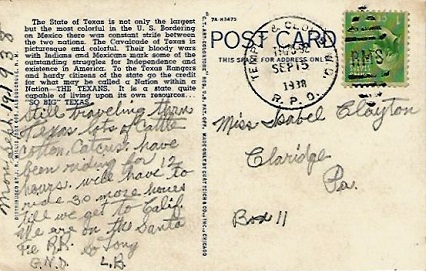 The State of Texas is not only the largest
but the most colorful in the U. S. Bordering
on Mexico there was constant strife between
the two nations. The Cavalcade of Texas is
picturesque and colorful. Their bloody wars
with Indians and Mexicans mark some of the
outstanding struggles for Independence and
existence in America. To the Texas Rangers
and hardy citizens of the state go the credit
for what may be called a Nation within a
Nation—THE TEXANS. It is a state quite
capable of living upon its own resources...
"SO BIG" TEXAS.
Still traveling thru
Texas lots of Cattle
Cotton, Catcus, have
been riding for 12
hours. will have to
ride 30 more hours
till we get to Calif
We are on the Santa
Fe RR. So Long
L.B.
Mon. Sept. 1938
7A-H3475
POST CARD
THIS SPACE FOR ADDRESS ONLY
SEP 15
1938
R.P.O.
RMS
1
Miss Isabel Clayton
Claridge
Pa.
Box 11